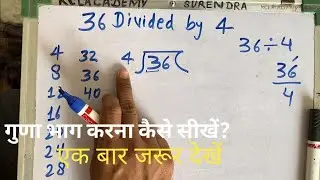 RCLACADEMY SURENDRA
36 Divided by 4
4 32
8 36
12 40
16
28
4√36(
36÷4
36
4
गुणा भाग करना कैसे सीखें?
एक बार जरूर देखें